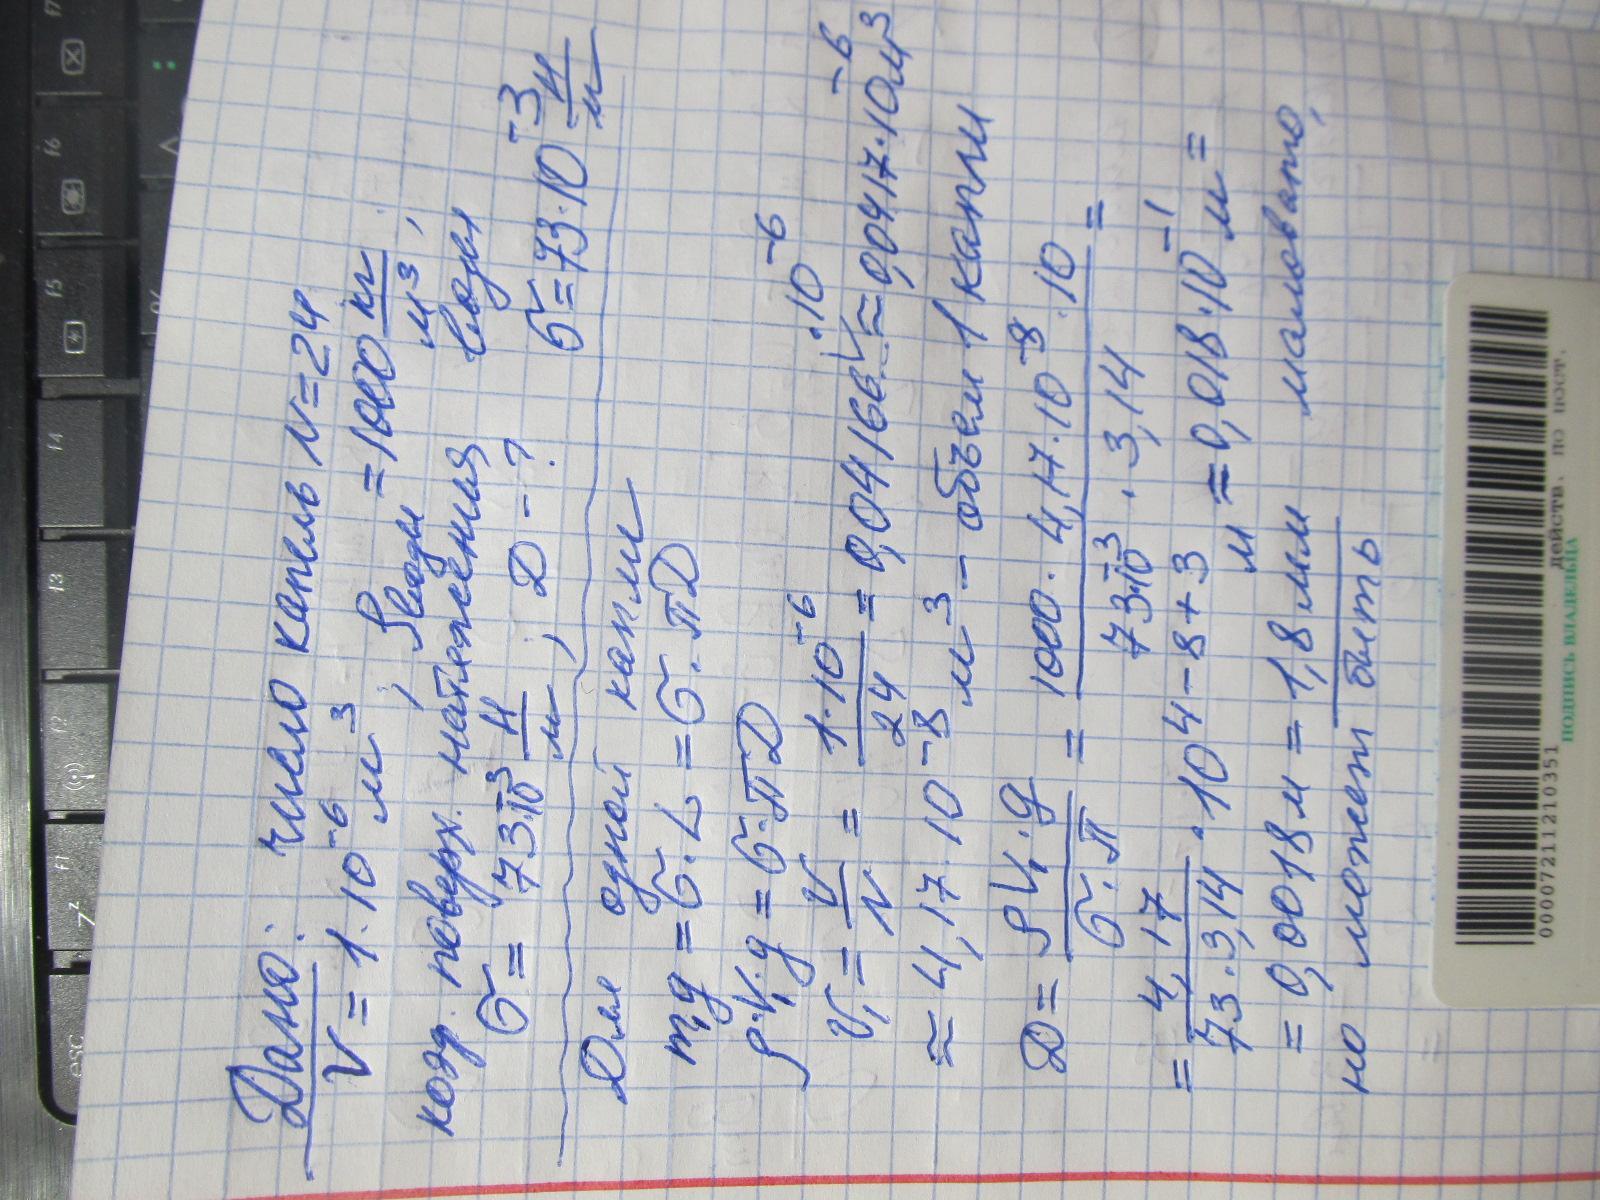 Дано: число капель N=24
V = 1·10⁻⁶ м³, ρводы =1000 кг/м³,
коэф. поверх. натяжения воды
σ = 73·10⁻³ Н/м; D-? σ=73·10⁻³ Н/м
Для одной капли
m₁g = σ·L = σ·πD
ρ·V₁·g = σ·πD
V₁ = V/N = 1·10⁻⁶/24 = 0,04166V·10⁻⁶ ≈ 0,0417·10⁻⁶м³
≈ 4,17·10⁻⁸ м³ – объем 1 капли
D = ρV₁·g/σ·π = 1000·4,17·10⁻⁸·10/73·10⁻³·3,14 =
= 4,17/73·3,14 · 10⁴⁻⁸⁺³ м ≈ 0,018·10⁻¹ м =
= 0,0018м = 1,8мм маловато,
но может быть
esc
f1
f2
f3
f4
f5
f6
f7
0000721121210351
ПОДПИСЬ ВЛАДЕЛЬЦА
действ. по пост.